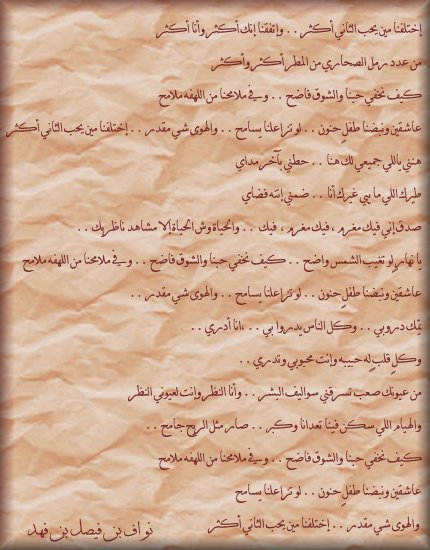 إختلفنا مين يحب الثاني أكثر . . وإتفقنا إنك أكثر وأنا أكثر
من عدد رمل الصحاري من المطر أكثر وأكثر
كيف نخفي حبنا والشوق فاضح . . وفي ملامحنا من اللهفه ملامح
عاشقين ونبضنا طفلٍ حنون . . لو تزاعلنا يسامح . . والهوى شي مقدر . . إختلفنا مين يحب الثاني أكثر
همني ياللي جميعي لك هنا . . حطني بآخر مداي
طيرك اللي ما يبي غيرك أنا . . ضمني إنته فضاي
صدق إني فيك مغرم ، فيك مغرم ، فيك . . والحياة وش الحياة إلا مشاهد ناظريك . .
يا نهارٍ لو تغيب الشمس واضح . . كيف نخفي حبنا والشوق فاضح . . وفي ملامحنا من اللهفه ملامح
عاشقين ونبضنا طفلٍ حنون . . لو تزاعلنا يسامح . . والهوى شي مقدر . .
يمّك دروبي . . وكل الناس يدروا بي . . ،انا أدري . .
وكل قلبٍ له حبيبه وإنت محبوبي وتدري . .
من عيونك صعب تسرقني سواليف البشر . . وأنا النظر وإنت لعيوني النظر
والهيام اللي سكن فينا تعدانا وكبر . . صار مثل الريح جامح . .
كيف نخفي حبنا والشوق فاضح . . وفي ملامحنا من اللهفه ملامح
عاشقين ونبضنا طفلٍ حنون . . لو تزاعلنا يسامح
والهوى شي مقدر . . إختلفنا مين يحب الثاني أكثر
نواف بن فيصل بن فهد